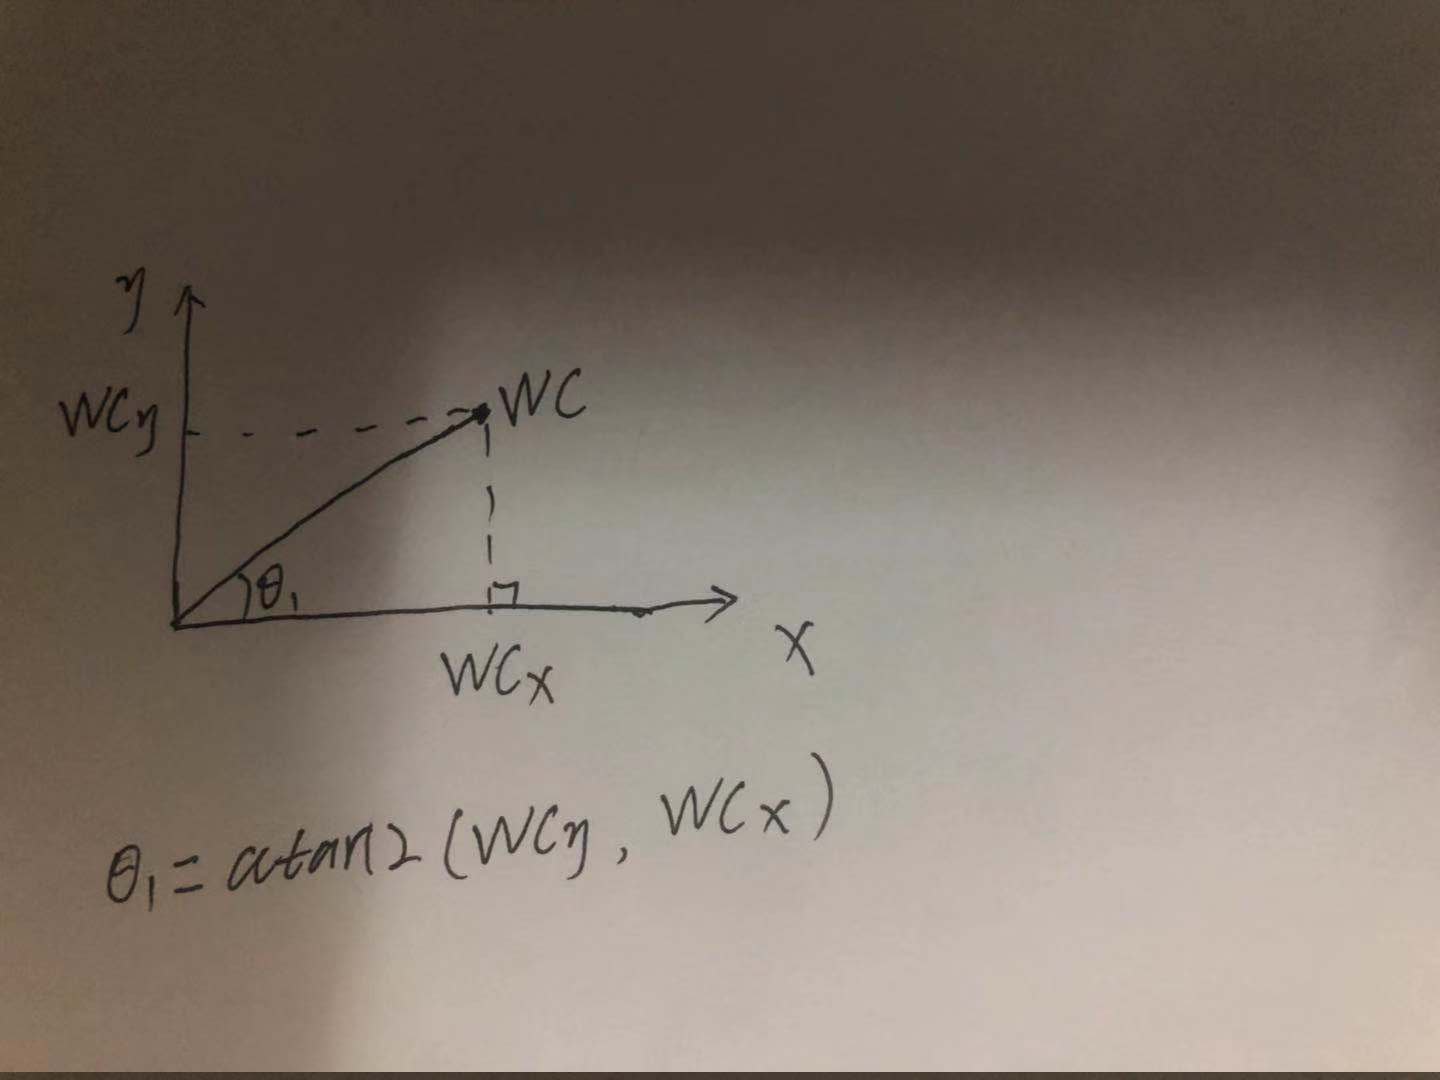 y
WCy
WC
θ₁
WCx
X
θ₁ = atan2 (WCy, WCx)